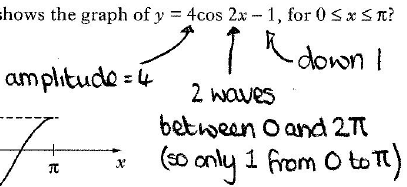 shows the graph of y = 4cos 2x – 1, for 0 ≤ x ≤ π?
down 1
amplitude = 4
2 waves
between 0 and 2π
(so only 1 from 0 to π)
π x